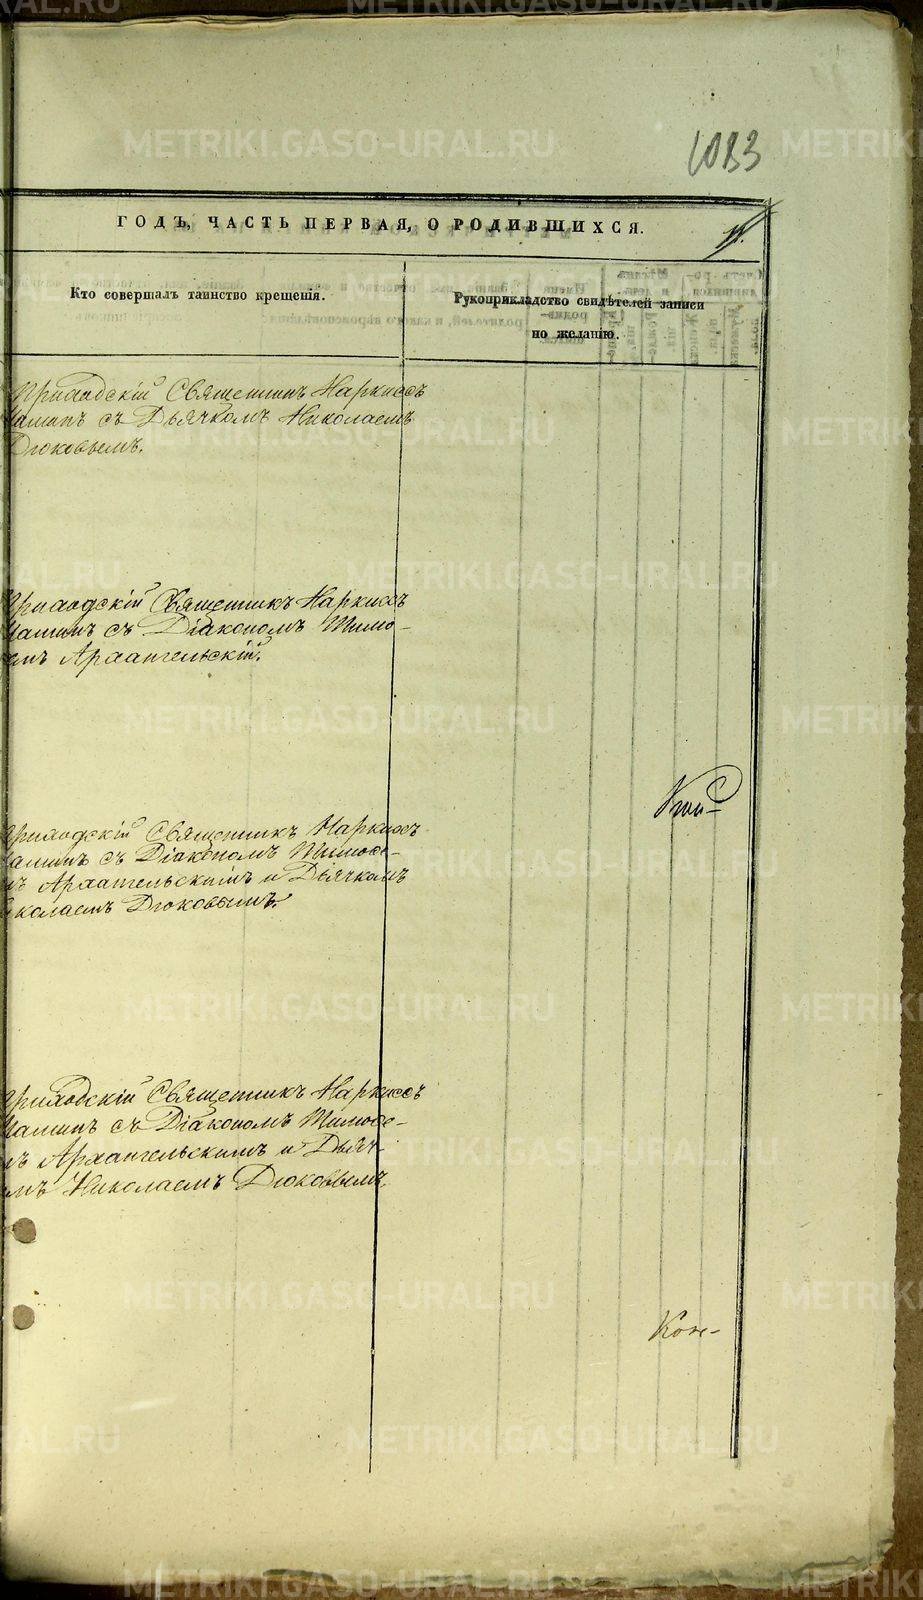 1083
ГОДЪ, ЧАСТЬ ПЕРВАЯ, О РОДИВШИХСЯ.
Кто совершалъ таинство крещенія.
Рукоприкладство свидѣтелей записи
по желанію.
Приходскій Священникъ Наркиссъ
съ Дьячкомъ Николаемъ
Дюковымъ.
Приходскій Священникъ Наркиссъ
съ Діакономъ Тимо-
емъ Архангельскій.
Приходскій Священникъ Наркиссъ
съ Діакономъ Тимофе-
мъ Архангельскимъ и Дьячкомъ
иколаемъ Дюковымъ.
Приходскій Священникъ Наркиссъ
съ Діакономъ Тимофе-
мъ Архангельскимъ и Дьяч-
омъ Николаемъ Дюковымъ.
METRIKI.GASO-URAL.RU